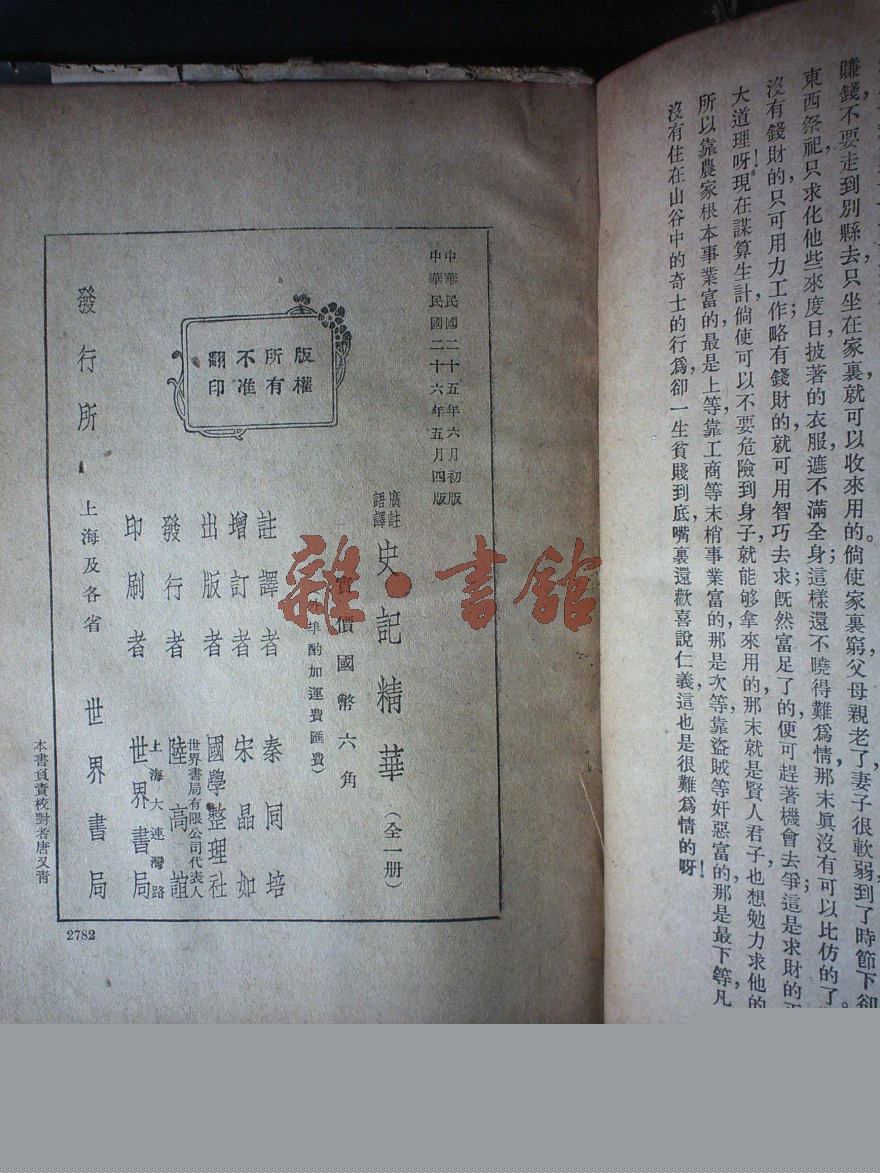 賺錢，不要走到別縣去，只坐在家裏，就可以收來用的。倘使家裏窮，父母親老了，妻子很軟弱，到了時節下，卻
東西祭祀，只求化他些來度日，披著的衣服，遮不滿全身；這樣還不曉得難爲情，那末眞沒有可以比仿的了。
沒有錢財的，只可用力工作；略有錢財的，就可用智巧去求；旣然富足了的，便可趕著機會去爭；這是求財的
大道理呀！現在謀算生計，倘使可以不要危險到身子，就能够拿來用的，那末就是賢人君子，也想勉力求他的
所以靠農家根本事業富的，最是上等，靠工商等末梢事業富的，那是次等，靠盜賊等奸惡富的，那是最下等，凡
沒有住在山谷中的奇士的行爲，卻一生貧賤到底，嘴裏還歡喜說仁義，這也是很難爲情的呀！
中華民國二十五年六月初版
中華民國二十六年五月四版
廣註
語譯
史記精華（全一册）
實價國幣六角
外埠酌加運費匯費）
註譯者 秦同培
增訂者 宋晶如
出版者 國學整理社
發行者 世界書局有限公司代表人 陸高誼
印刷者 上海大連灣路 世界書局
發行所 上海及各省 世界書局
版權
所有
不准
翻印
本書負責校對者唐又青
2782
雜·書館